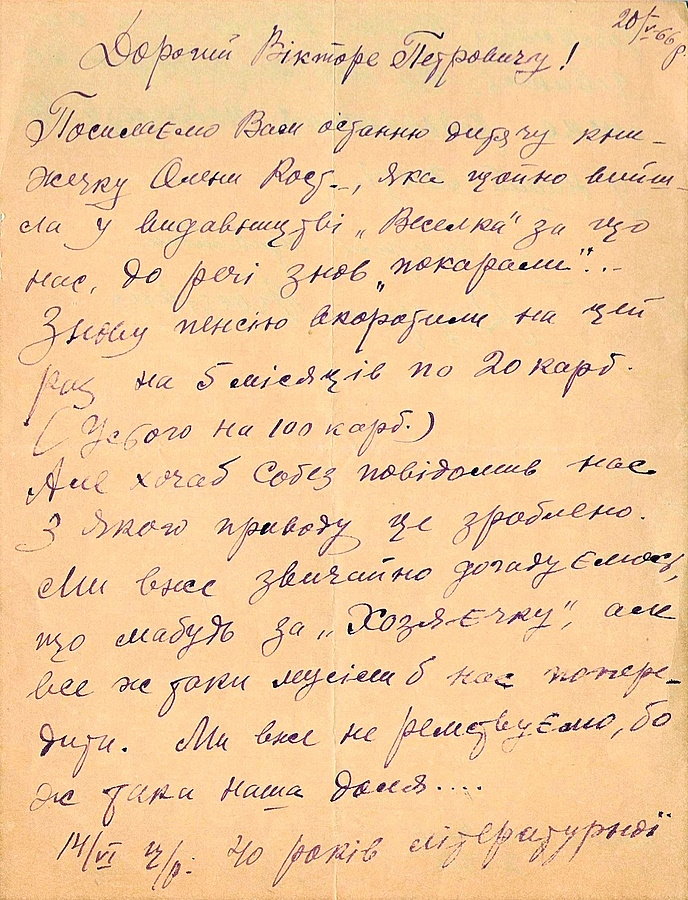 20/V-66 р.
Дорогий Вікторе Петровичу!
Посилаємо Вам останню дитячу кни-
жечку Олени Рост., яка щойно вийш-
ла у видавництві „Веселка" за що
нас, до речі знов „покарали"...
Знову пенсію вкоротили на цей
раз на 5 місяців по 20 карб.
(Усього на 100 карб.)
Але хочаб Собез повідомив нас
з якого приводу це зроблено.
Ми вже звичайно догадуємось,
що мабуть за „Хозяєчку", але
все ж таки мусіли б нас попере-
дити. Ми вже не ремствуємо, бо
ж така наша доля....
14/VI ц/р. 40 років літературної